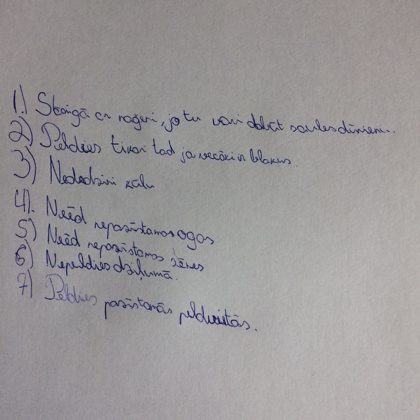 1.) Staigā ar naģeni, jo tu vari dabūt saulesdūrienu.
2) Peldies tikai tad ja vecāki ir blakus.
3) Nededzini zālu
4). Neēd nepazīstamas ogas
5) Neēd nepazīstamas sēnes
6) Nepeldies dziļumā.
7) Peldies pazīstamās peldvietās.